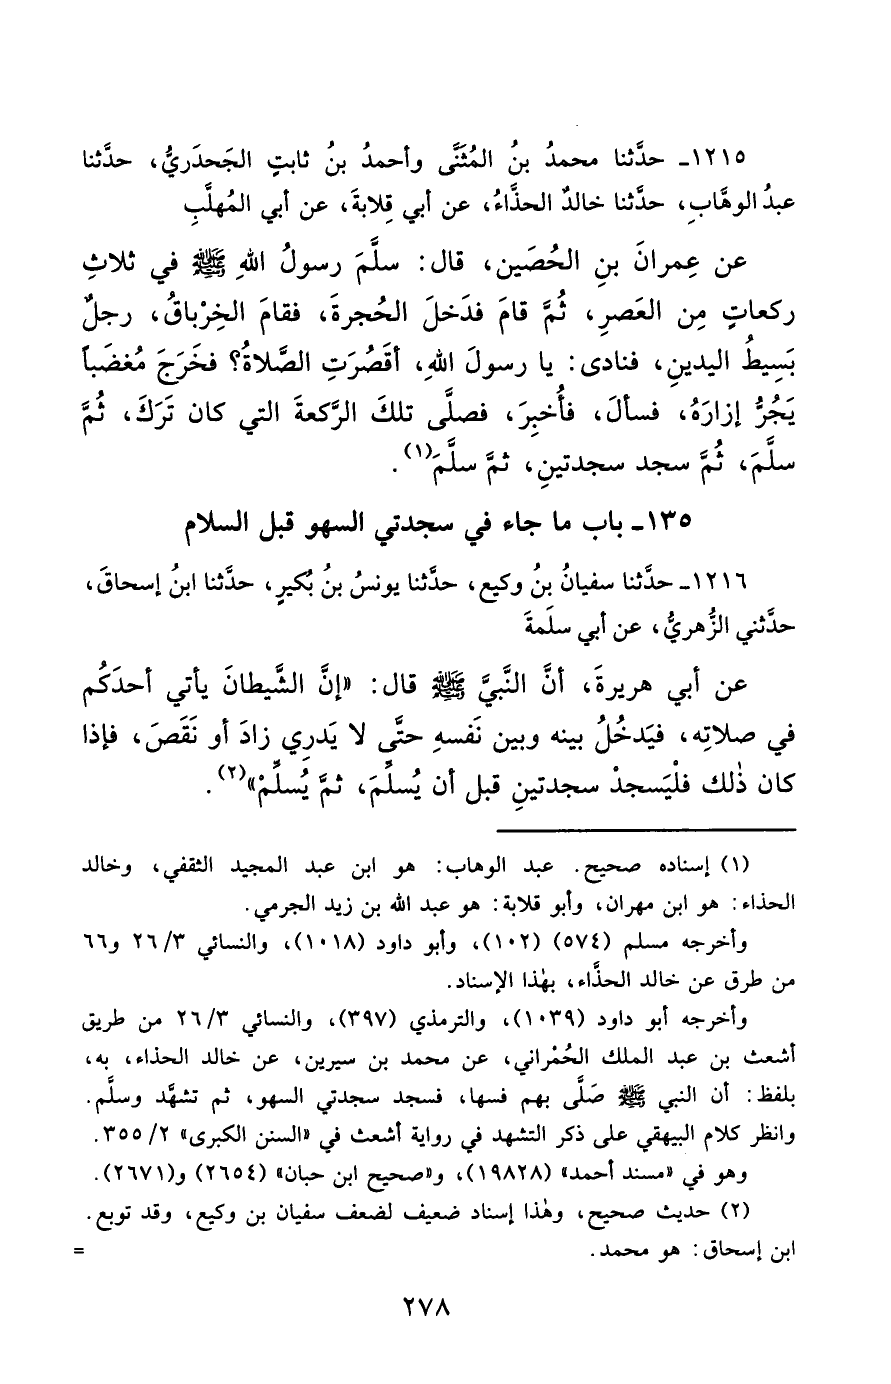 ١٢١٥ـ حدَّثنا محمدُ بنُ المُثَنَّى وأحمدُ بنُ ثابتٍ الجَحدَريُّ، حدَّثنا
عبدُ الوهَّابِ، حدَّثنا خالدٌ الحذَّاءُ، عن أبي قِلابةَ، عن أبي المُهلَّبِ
عن عِمرانَ بنِ الحُصَين، قال: سلَّمَ رسولُ اللهِ ﷺ في ثلاثِ
ركعاتٍ مِن العَصرِ، ثُمَّ قامَ فدَخلَ الحُجرةَ، فقامَ الخِرْباقُ، رجلٌ
بَسِيطُ اليدينِ، فنادى: يا رسولَ اللهِ، أقَصُرَتِ الصَّلاةُ؟ فخَرَجَ مُغضَباً
يَجُرُّ إزارَهُ، فسألَ، فأُخبِرَ، فصلَّى تلكَ الرَّكعةَ التي كان تَرَكَ، ثُمَّ
سلَّمَ، ثُمَّ سجد سجدتينِ، ثمَّ سلَّمَ(١).
١٣٥ـ باب ما جاء في سجدتي السهو قبل السلام
١٢١٦ـ حدَّثنا سفيانُ بنُ وكيع، حدَّثنا يونسُ بنُ بُكيرٍ، حدَّثنا ابنُ إسحاقَ،
حدَّثني الزُّهريُّ، عن أبي سلَمةَ
عن أبي هريرةَ، أنَّ النَّبيَّ ﷺ قال: «إنَّ الشَّيطانَ يأتي أحدَكُم
في صلاتِه، فيَدخُلُ بينه وبين نَفسهِ حتَّى لا يَدرِي زادَ أو نَقَصَ، فإذا
كان ذٰلك فلْيَسجدْ سجدتينِ قبل أن يُسلِّمَ، ثمَّ يُسلِّمْ»(٢).
(١) إسناده صحيح. عبد الوهاب: هو ابن عبد المجيد الثقفي، وخالد
الحذاء: هو ابن مهران، وأبو قلابة: هو عبد الله بن زيد الجرمي.
وأخرجه مسلم (٥٧٤) (١٠٢)، وأبو داود (١٠١٨)، والنسائي ٣/ ٢٦ و٦٦
من طرق عن خالد الحذَّاء، بهٰذا الإسناد.
وأخرجه أبو داود (١٠٣٩)، والترمذي (٣٩٧)، والنسائي ٣/ ٢٦ من طريق
أشعث بن عبد الملك الحُمْراني، عن محمد بن سيرين، عن خالد الحذاء، به،
بلفظ: أن النبي ﷺ صَلَّى بهم فسها، فسجد سجدتي السهو، ثم تشهَّد وسلَّم.
وانظر كلام البيهقي على ذكر التشهد في رواية أشعث في «السنن الكبرى» ٢/ ٣٥٥.
وهو في «مسند أحمد» (١٩٨٢٨)، و«صحيح ابن حبان» (٢٦٥٤) و(٢٦٧١).
(٢) حديث صحيح، وهٰذا إسناد ضعيف لضعف سفيان بن وكيع، وقد توبع.
ابن إسحاق: هو محمد. =
٢٧٨